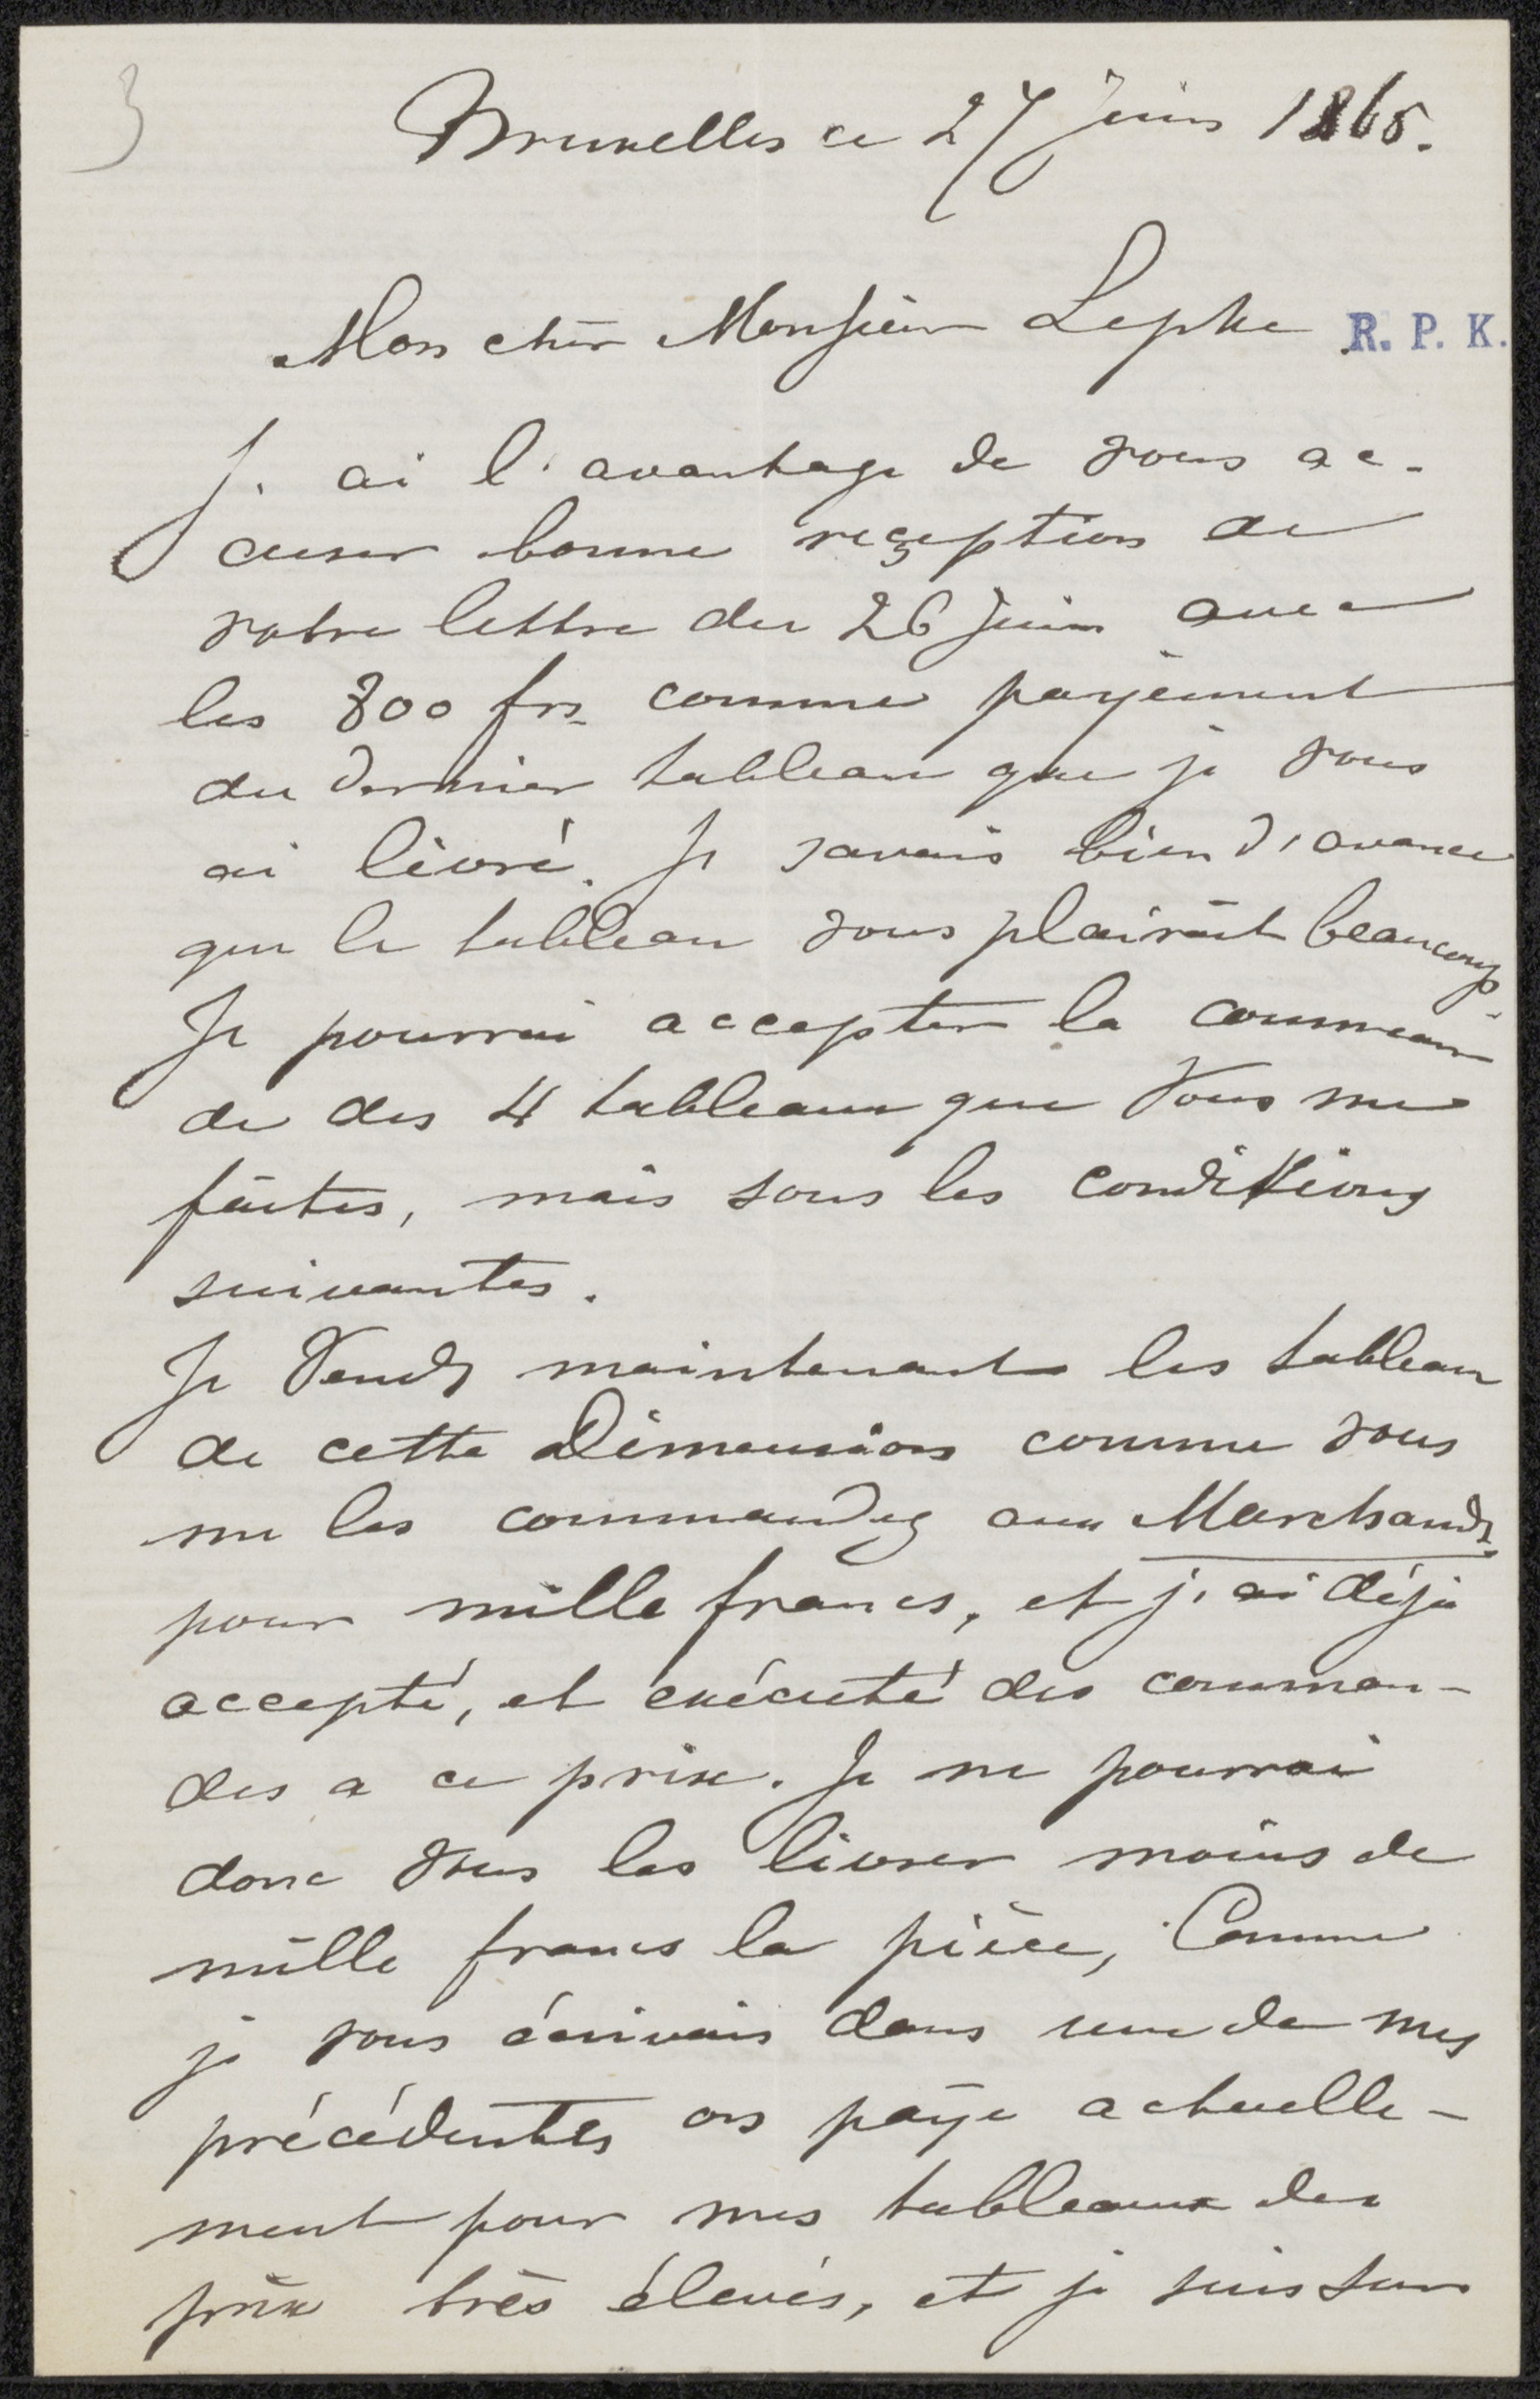 3
Bruxelles ce 27 Juin 1865.
Mon cher Monsieur Lepke
R. P. K.
J'ai l'avantage de vous ac-
cuser bonne reçeption de
votre lettre du 26 Juin avec
les 800 frs comme payement
du dernier tableau que je vous
ai livré. Je savais bien d'avance
que le tableau vous plairait beaucoup.
Je pourrai accepter la comman-
de des 4 tableaux que vous me
faites, mais sous les conditions
suivantes.
Je vends maintenant les tableaux
de cette Dimension comme vous
me les commandez aux Marchands
pour mille francs, et j'ai déjà
accepté, et exécuté des comman-
des a ce prix. Je ne pourrai
donc vous les livrer moins de
mille francs la pièce, Comme
je vous écrivais dans une de mes
précédentes on paye actuelle-
ment pour mes tableaux des
prix très élevés, et je suis sur